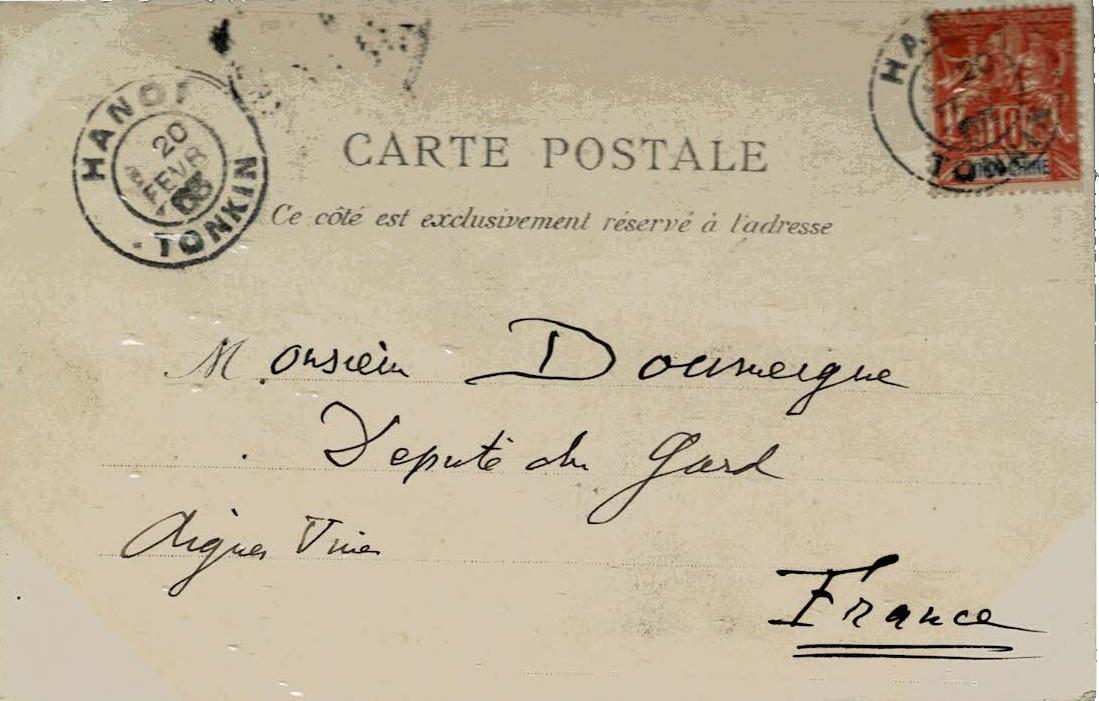 HANOI
20
FEVR
03
TONKIN
HA
20
10
TON
INDOCHINE
CARTE POSTALE
Ce côté est exclusivement réservé à l'adresse
Monsieur Doumergue
Député du Gard
Aigues Vives
France